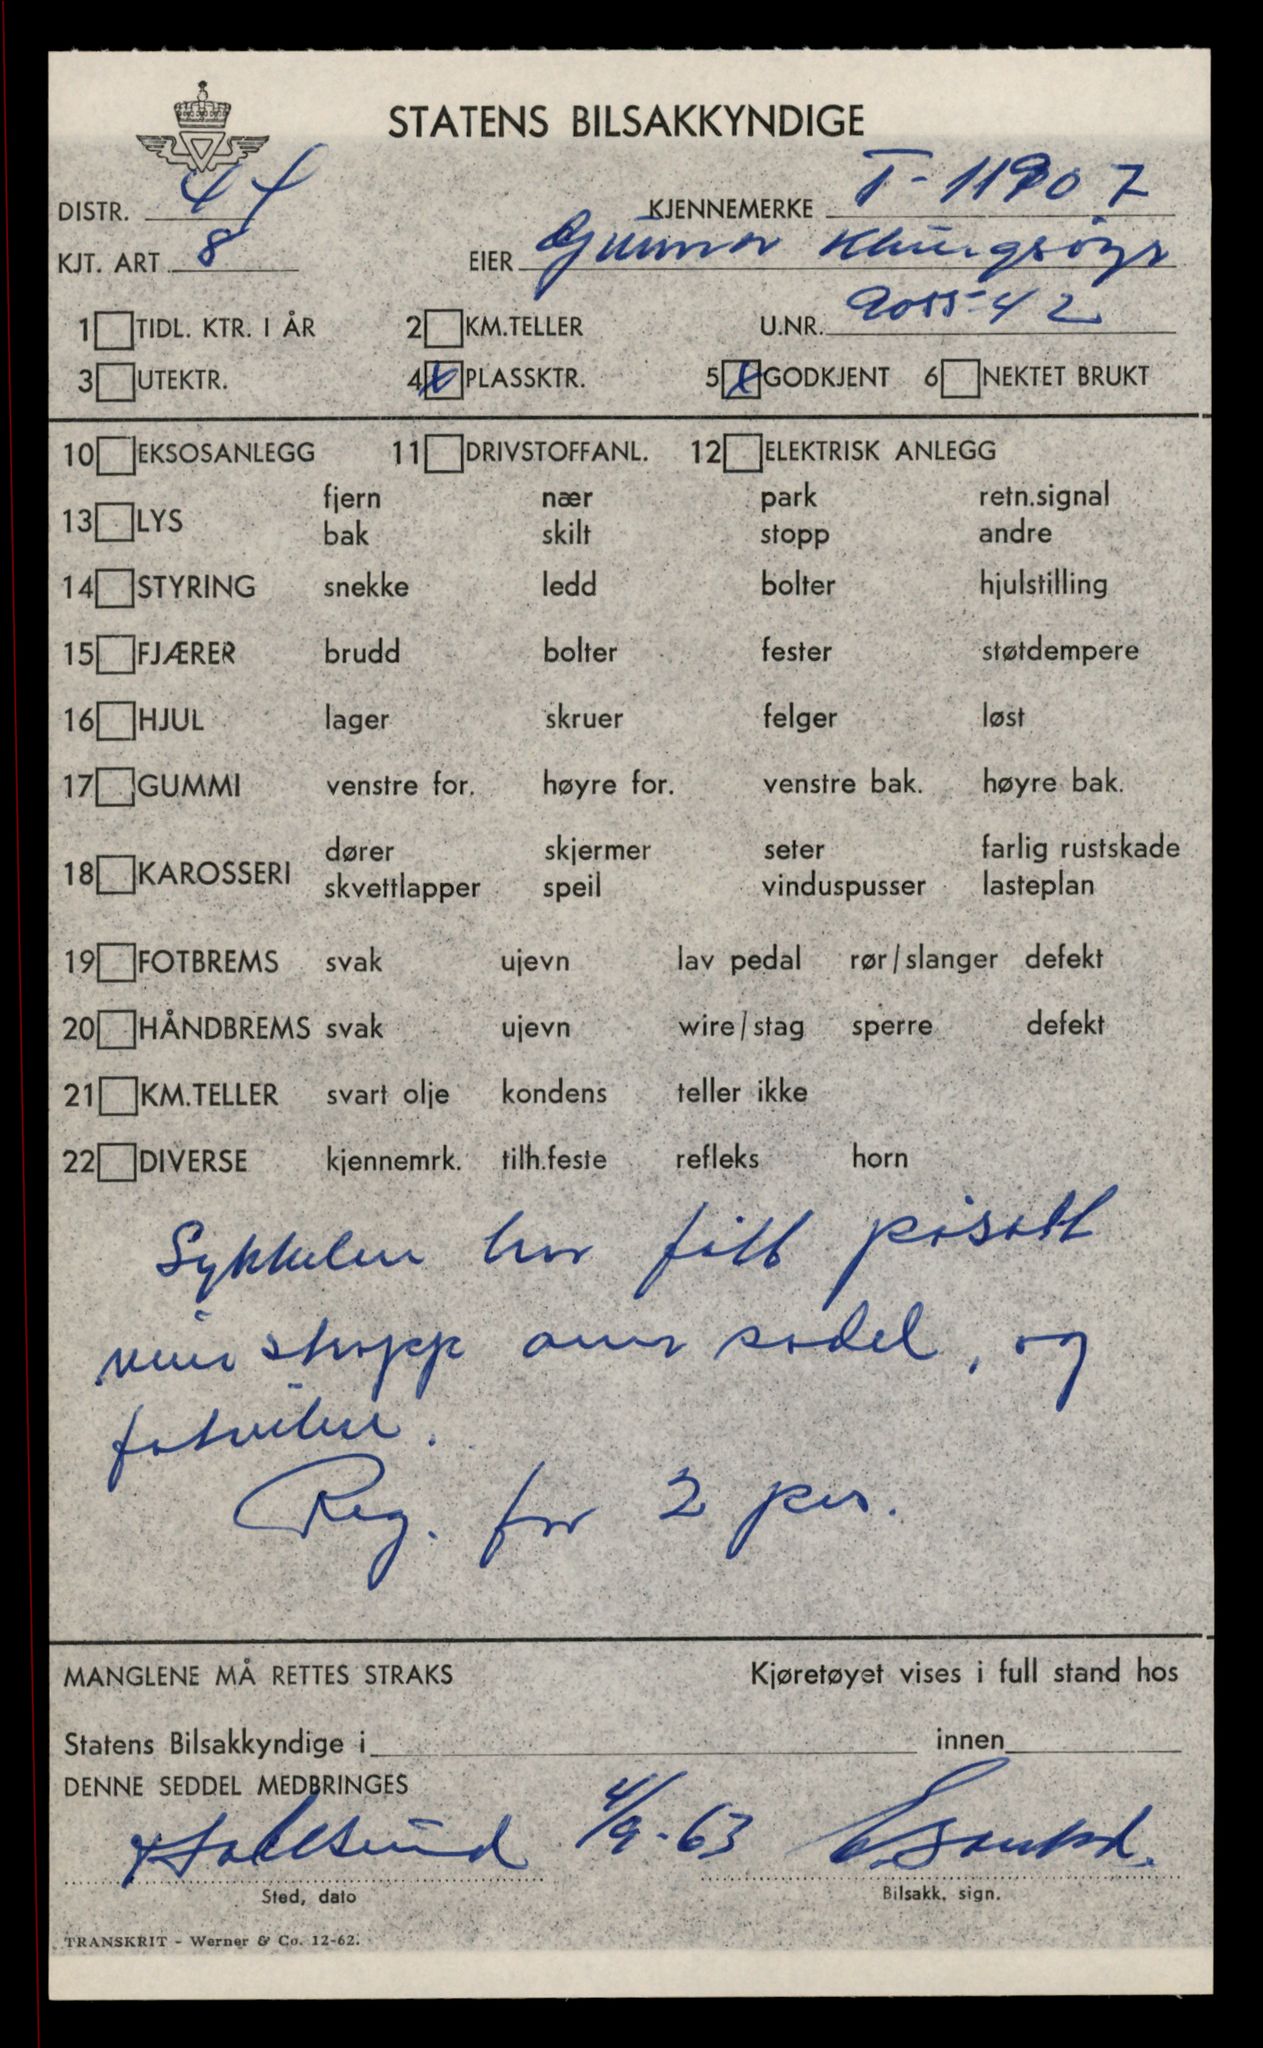 STATENS BILSAKKYNDIGE
DISTR. 44 KJENNEMERKE T-11907
KJT. ART 8 EIER Gunnar
1 TIDL. KTR. I ÅR 2 KM.TELLER U.NR. 9055-42
3 UTEKTR. 4 x PLASSKTR. 5 x GODKJENT 6 NEKTET BRUKT
10 EKSOSANLEGG 11 DRIVSTOFFANL. 12 ELEKTRISK ANLEGG
fjern nær park retn.signal
13 LYS
bak skilt stopp andre
14 STYRING snekke ledd bolter hjulstilling
15 FJÆRER brudd bolter fester støtdempere
16 HJUL lager skruer felger løst
17 GUMMI venstre for. høyre for. venstre bak. høyre bak.
dører skjermer seter farlig rustskade
18 KAROSSERI
skvettlapper speil vinduspusser lasteplan
19 FOTBREMS svak ujevn lav pedal rør/slanger defekt
20 HÅNDBREMS svak ujevn wire/stag sperre defekt
21 KM.TELLER svart olje kondens teller ikke
22 DIVERSE kjennemrk. tilh.feste refleks horn
Sykkelen har fått påsatt
stropp over sadel, og
fotviler.
Reg. for 2 pers.
MANGLENE MÅ RETTES STRAKS Kjøretøyet vises i full stand hos
Statens Bilsakkyndige i innen
DENNE SEDDEL MEDBRINGES
4/9-63
Sted, dato Bilsakk. sign.
TRANSKRIT - Werner & Co. 12-62.